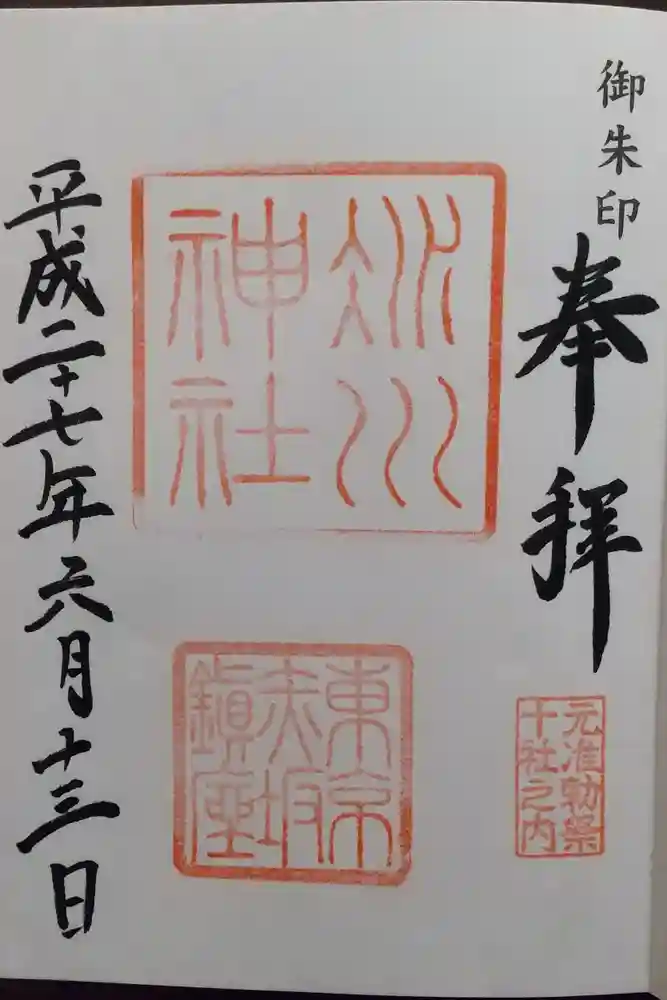 御朱印
奉拝
元准勅祭
十社之内
氷川
神社
東京
赤坂
鎮座
平成二十七年六月十三日